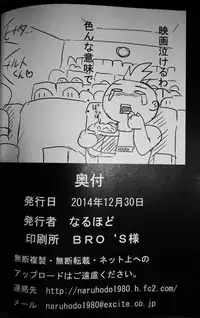 映画泣けるわ！
色んな意味で
ヒナタ…
ナルトくん♡
奥付
発行日 2014年12月30日
発行者 なるほど
印刷所 BRO'S様
無断複製・無断転載・ネット上への
アップロードはご遠慮ください。
連絡先 http://naruhodo1980.h.fc2.com/
メール naruhodo1980@excite.co.jp